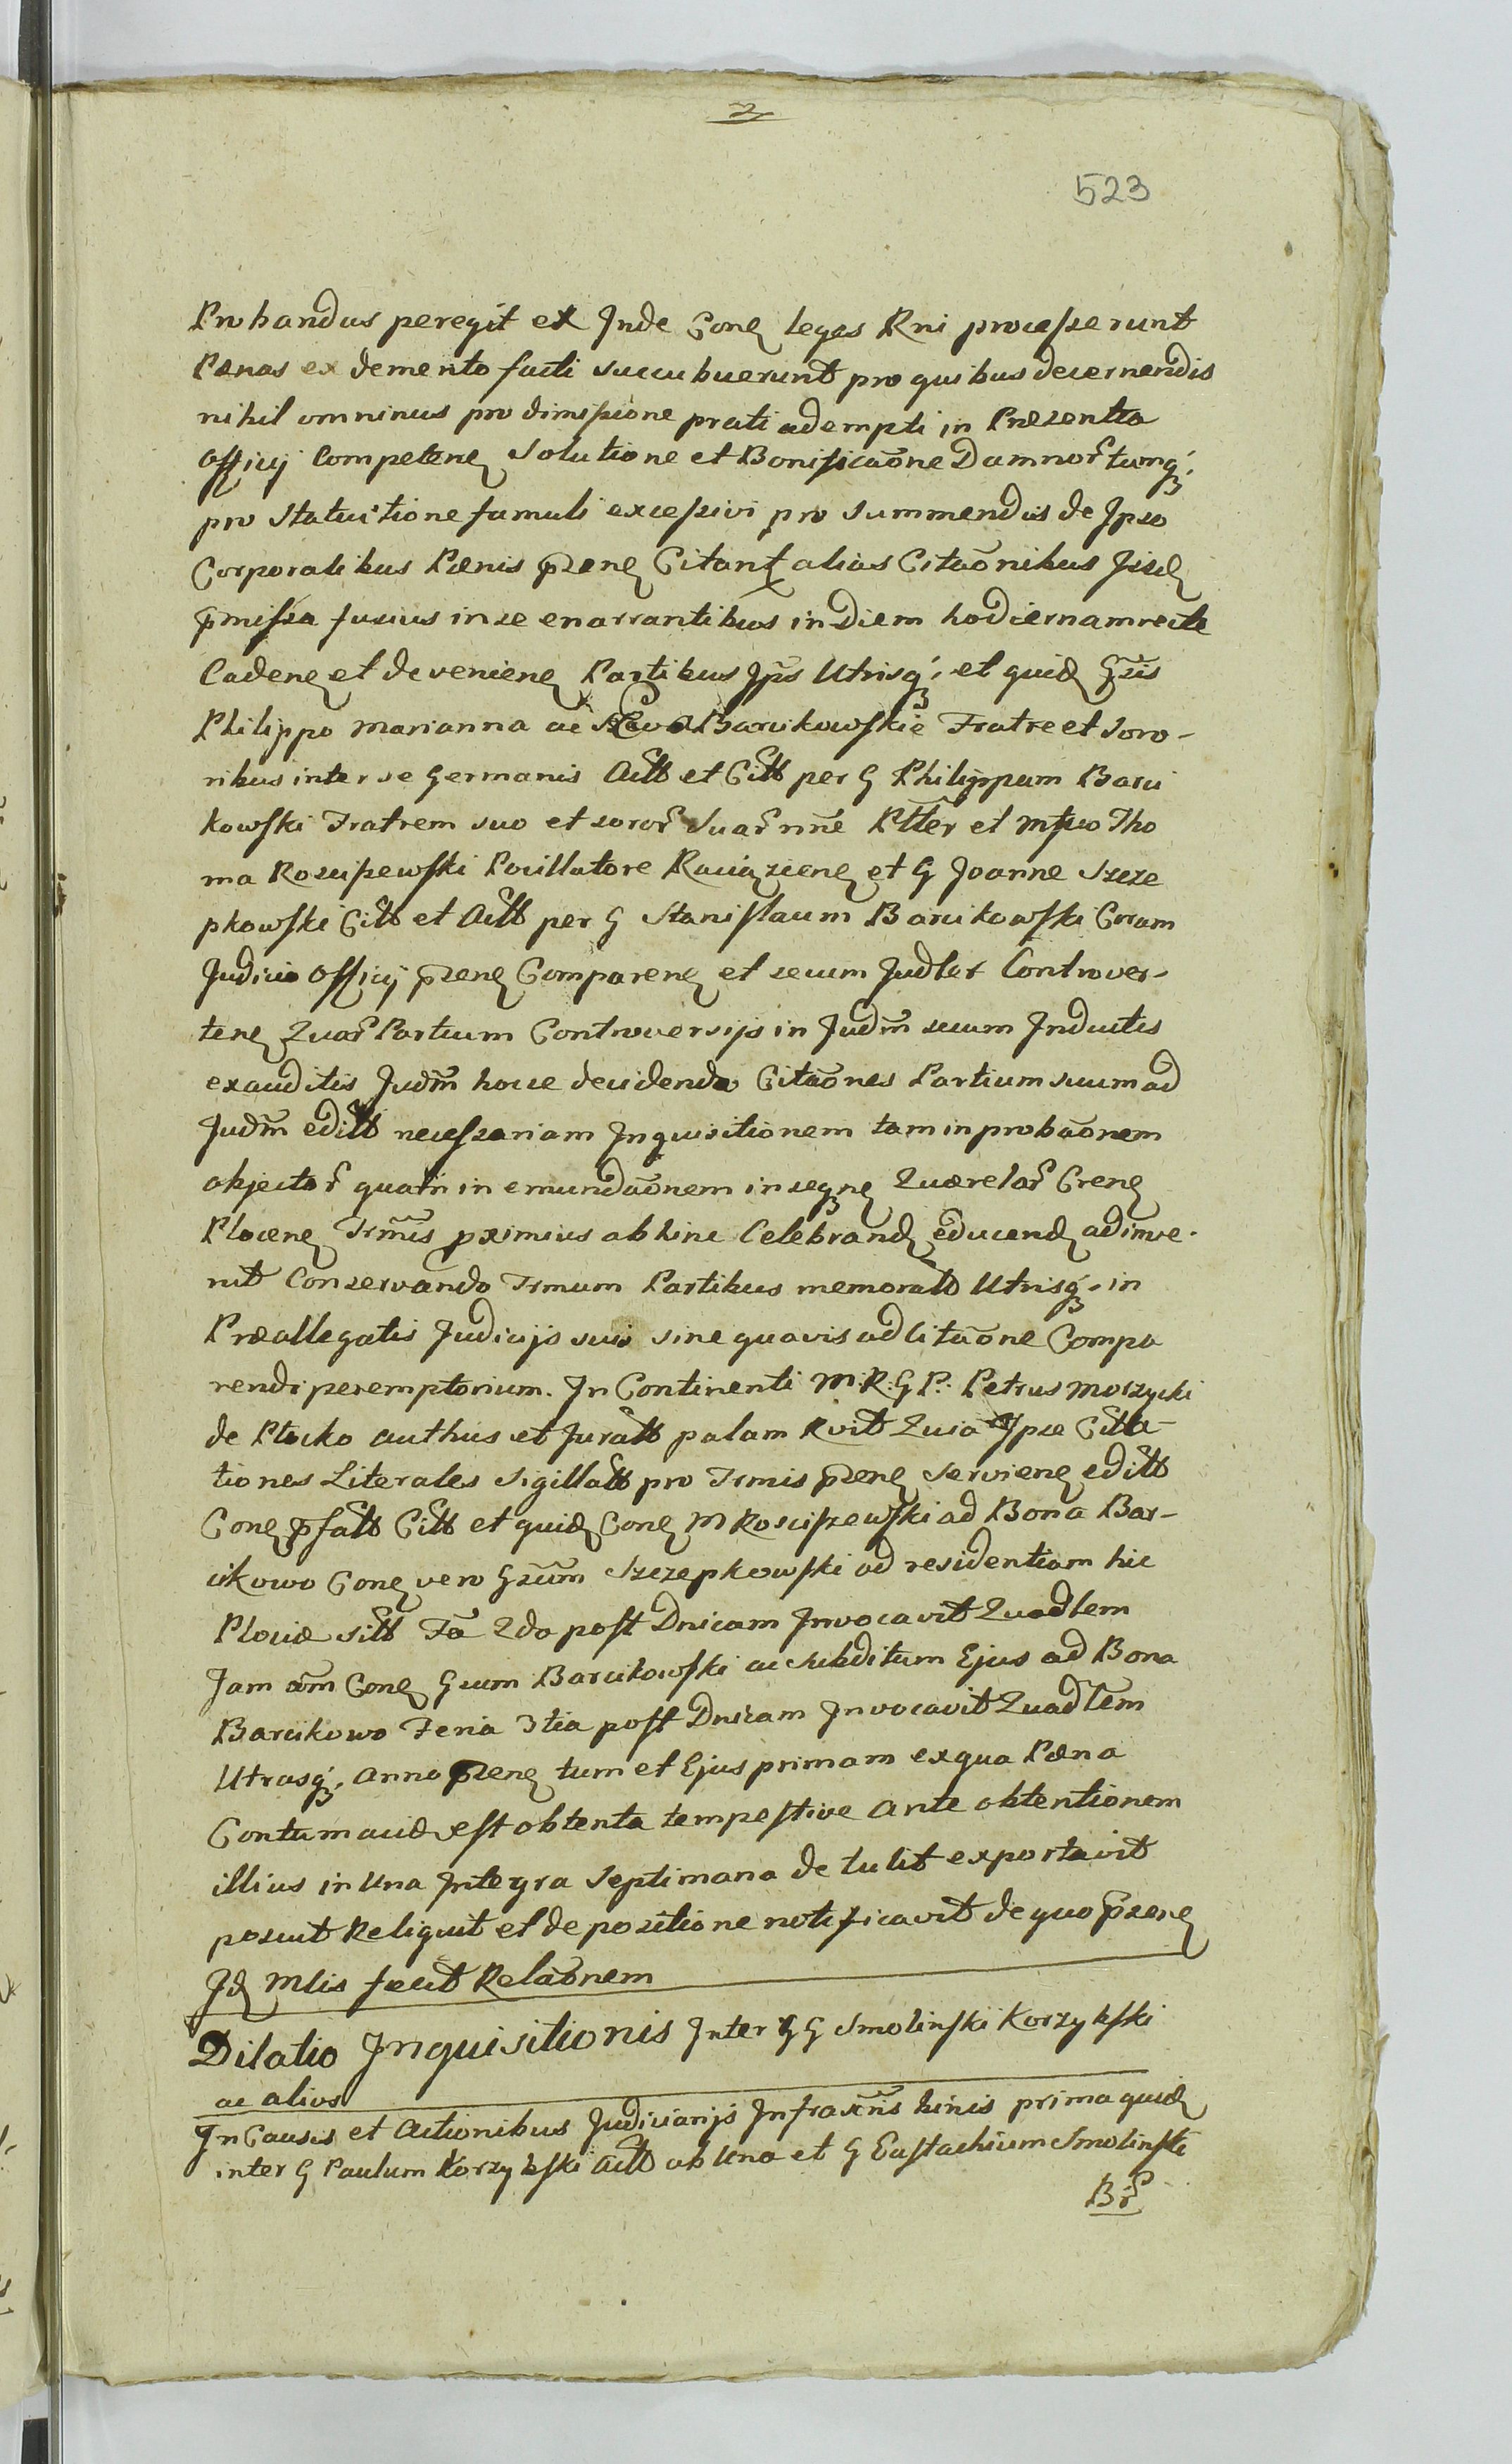 2
523
Probandas peregit ex Inde Cone leges Rni processerunt
Pænas ex demerito facti succubuerunt pro quibus decernendis
nihil omninus pro dimissione prati adempti in Præsentia
Officij Competene Solutione et Bonificaōne Damnor tumq;
pro Statuitione famuli excessivi pro summendis de Ipso
Corporalibus Pænis p̄zene Citant alias Citaōnibus Iisd
p̄missa fusius in se enarrantibus in Diem hodiernam recte
Cadene et deveniene Partibus Ip̄is Utrisq; et quid Gr̄sis
Philippo Marianna ac Barcikowskie Fratre et Soro-
ribus inter se Germanis Actt et Citt per G Philippum Barci
kowski Fratrem suo et soror Suar nn̄e Ptt̄er et Mfico Tho
ma Roscissewski Pocillatore Raciąziene et G Joanne Szcze
pkowski Citt et Actt per G Stanislaum Barcikowski Coram
Judicio Officij p̄zene Comparene et secum Judler Controver-
tene Quar Partium Controversijs in Judm̄ secum Inductis
exauditis Judm̄ hocce decidendo Citaōnes Partium suum ad
Judm̄ editt necessariam Inquisitionem tam in probaōnem
objector quam in emundaōnem inseqne Quærelar Crene
Plocene Trm̄is pximius abhinc Celebrand educend adinve-
nit Conservando Trmum Partibus memoratt Utrisq; in
Præallegatis Judicijs suis sine quavis adcitaōne Compa
rendi peremptorium. In Continenti M: R: G P: Petrus Morzycki
de Płocko authus et Juratt palam Rvit Quia Ipse Citta-
tiones Literales Sigillatt pro Trmis p̄zene Serviene editt
Cone p̄fatt Citt et quid Cone M Roscissewski ad Bona Bar-
cikowo Cone vero Gsum̄ Szczepkowski ad residentiam hic
Plociæ sitt Fā 2da post Dnicam Invocavit Quadlem
Jam am̄ Cone Gsum Barcikowski ac Subditum Ejus ad Bona
Barcikowo Feria 3tia post Dnicam Invocavit Quadlem
Utrasq; Anno p̄zene tum et Ejus primam ex qua Pæna
Contumaciæ est obtenta tempestive Ante obtentionem
illius in Una Integra Septimana detulit exportavit
posuit Reliquit et de positione notificavit de quo p̄zene
Id Mlis fecit Relaōnem
Dilatio Inquisitionis Inter GG Smolinski Korzybski
ac alios
In Causis et Actionibus Judiciarijs Infrascr̄is binis prima quid
inter G Paulum Korzybski Actt ab Una et G Eustachium Smolinski